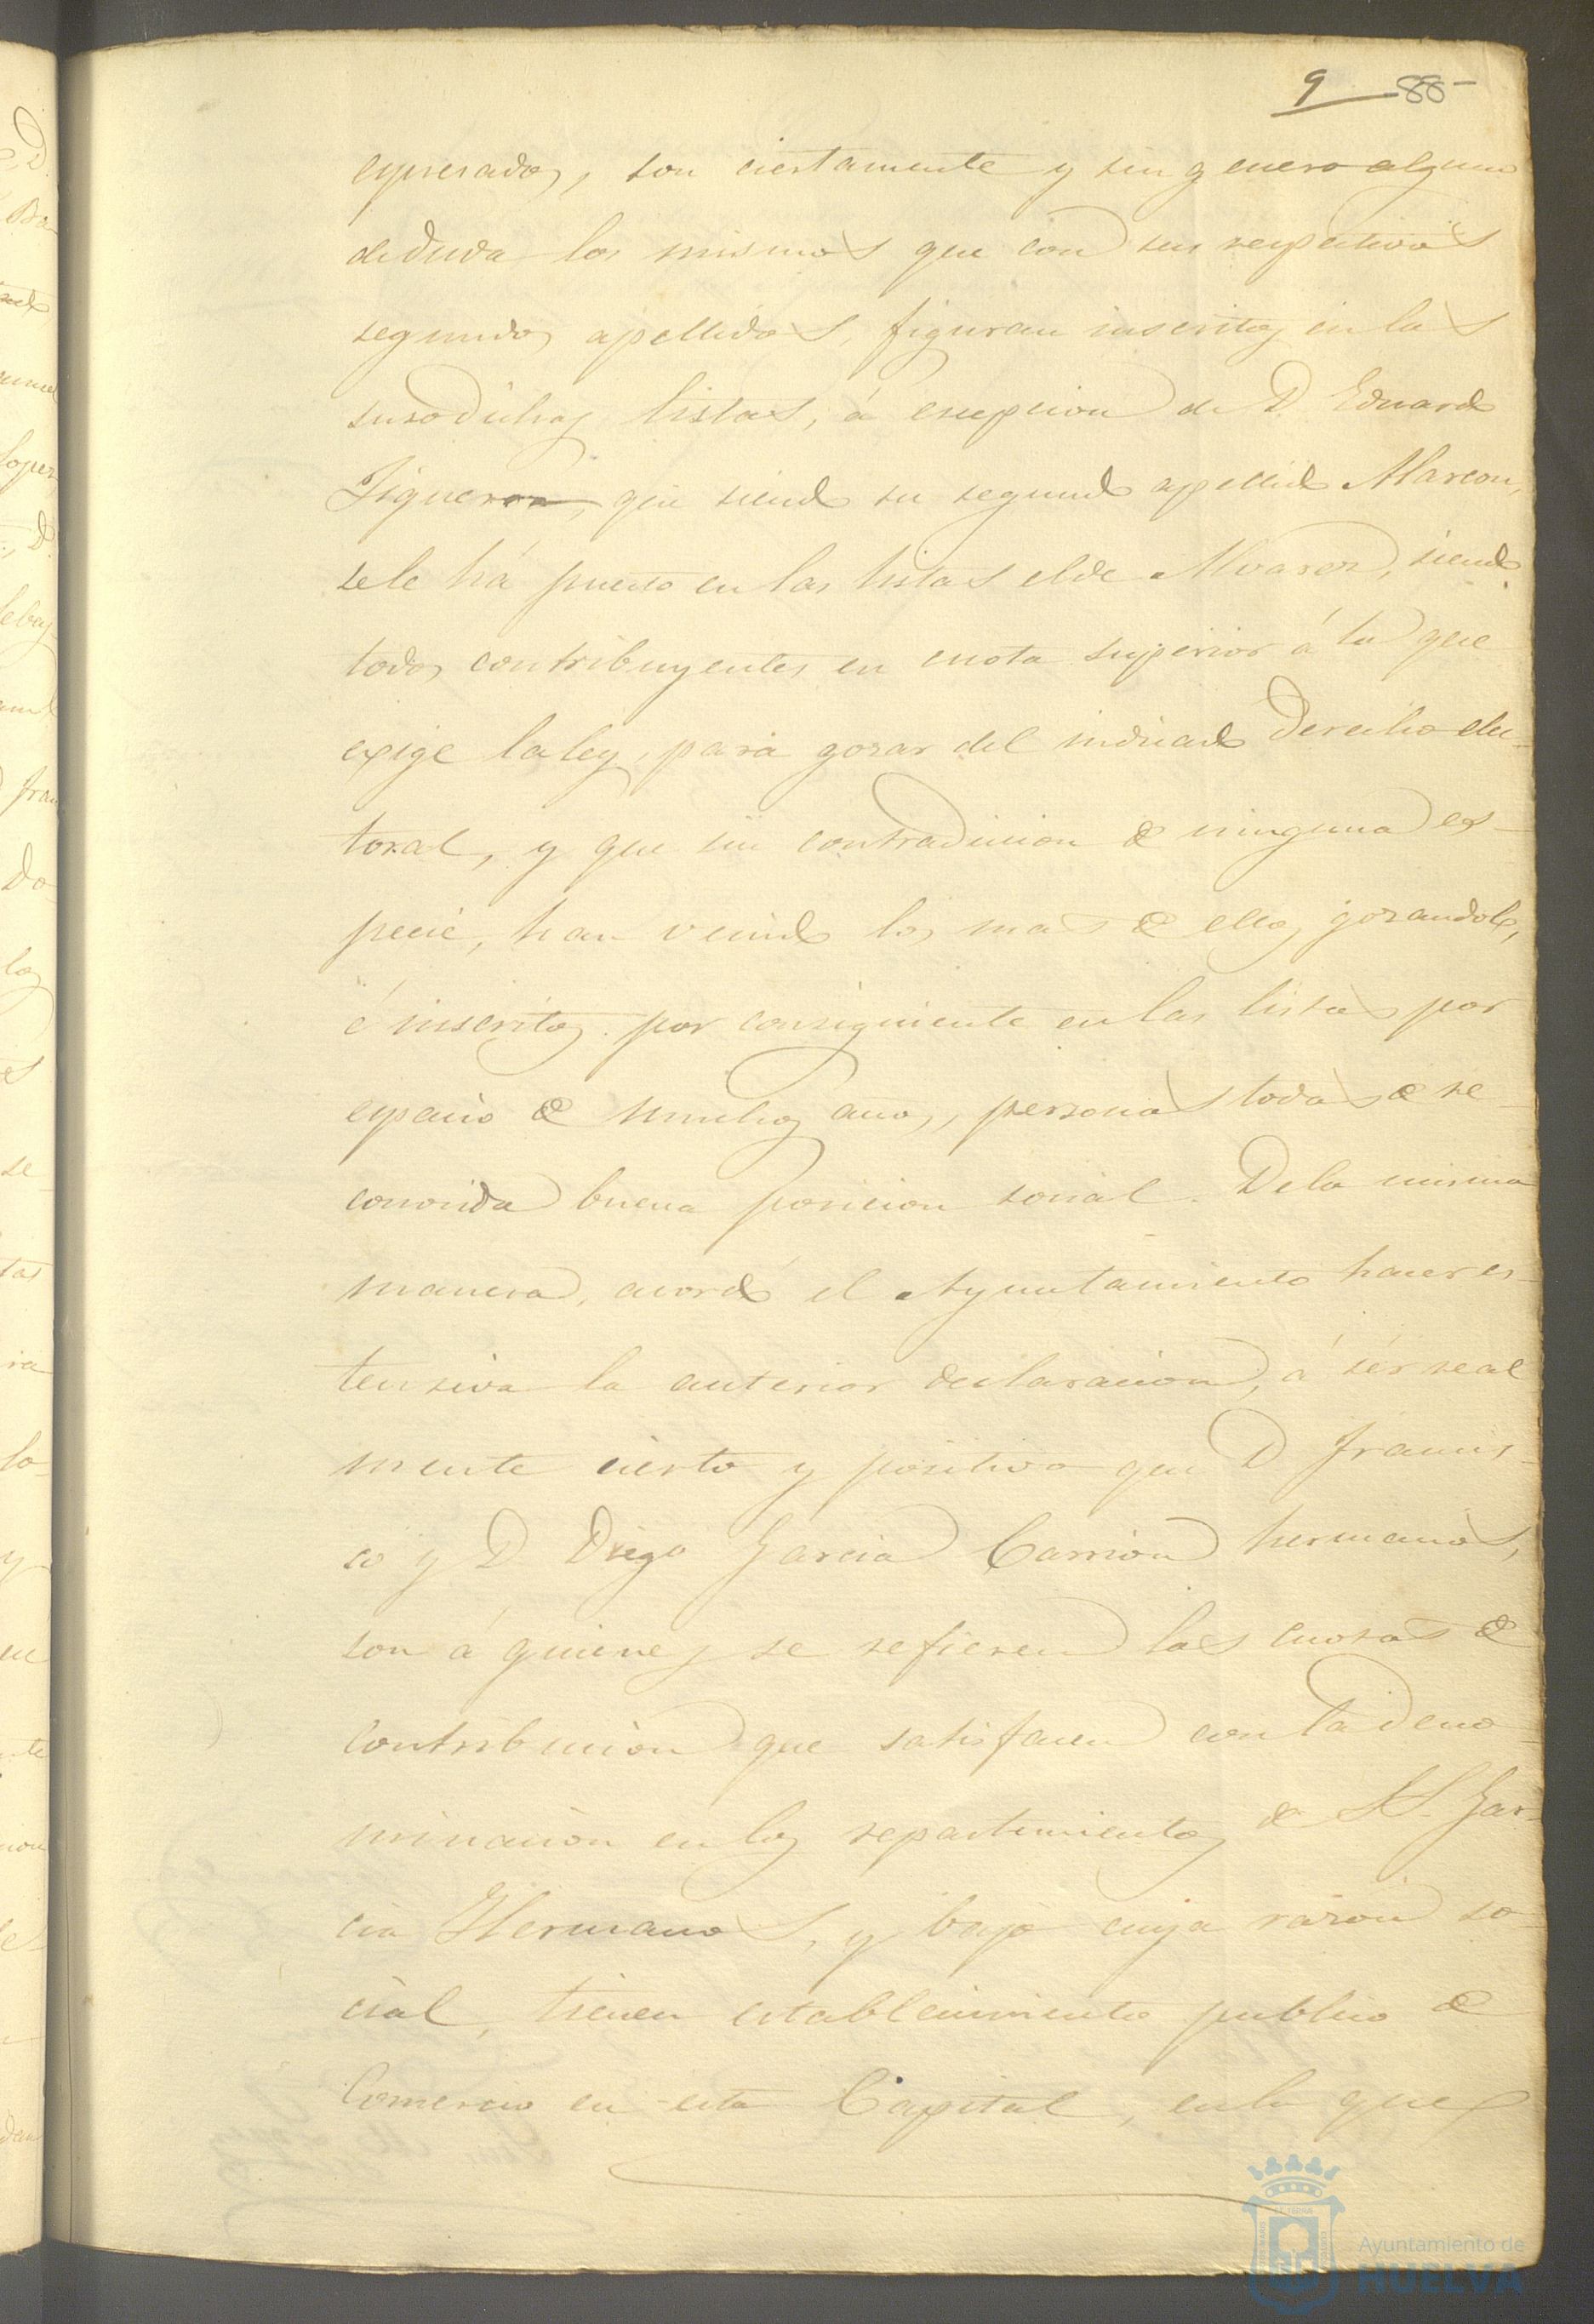 9 88-
espresados, son ciertamente y sin genero alguno
de duda los mismos que con sus respectivos
segundos apellidos, figuran inscritos en las
susodichas listas, á escepcion de D. Eduardo
Figueroa, que siendo su segundo apellido Alarcon,
se le há puesto en las listas el de Alvarez, siendo
todos contribuyentes en cuota superior á la que
exige la ley, para gozar del indicado derecho elec-
toral, y que sin contradiccion de ninguna es-
pecie, han venido los mas de ellos gozandole,
é inscritos por consiguiente en las listas por
espacio de muchos años, personas todas de re-
conocida buena posicion social. De la misma
manera, acordó el Ayuntamiento hacer es-
tensiva la anterior declaracion, á sér real
mente cierto y positivo que D Francis-
co y D Diego Garcia Carrion hermanos,
son á quienes se refieren las cuotas de
contribucion que satisfacen con la deno-
minacion en los repartimientos de SS. Gar-
cia Hermanos, y bajo cuya razon so-
cial, tienen establecimiento publico de
Comercio en esta Capital, en la que
Ayuntamiento de
HUELVA